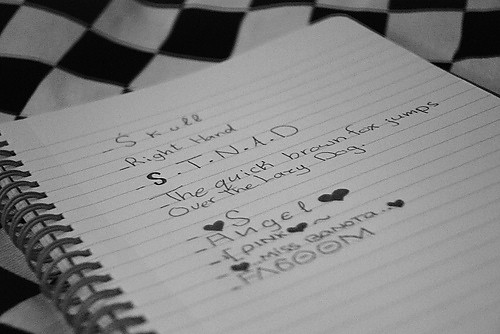 - Skull
- Right Hand
- S.T.N.1.D
- The quick brown fox jumps
Over the Lazy Dog.
- ♥ S
- Angel ♥
- [PINK♥~
- ♥..MISS BANOTA..♥
- FABOOM